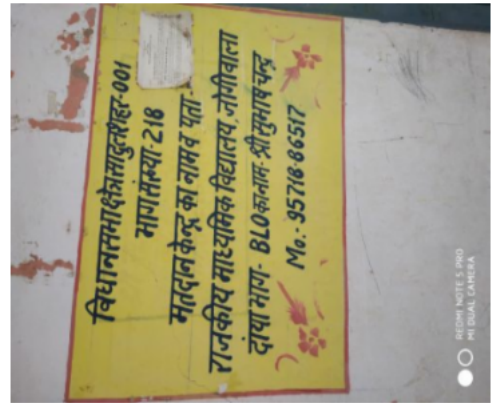 विधानसभा क्षेत्र सादुलशहर-001
भाग संख्या-218
मतदान केन्द्र का नाम व पता-
राजकीय माध्यमिक विद्यालय जोगीवाला
दांया भाग- BLO का नाम-श्री सुभाष चन्द्र
Mo.- 95718-86517
REDMI NOTE 5 PRO
MI DUAL CAMERA